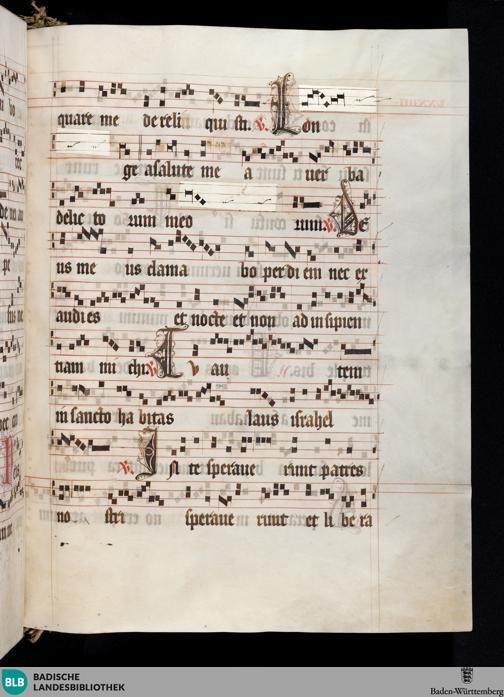 quare me dereli qui sti. V. Lon
ge a salute me a uer ba
delic to rum meo rum. V. De
us me us clama bo per di em nec ex
audi es et nocte et non ad in sipien
tiam mi chi. V. Tu au tem
in sancto ha bitas laus israhel
V. In te sperave runt patres
no stri sperave runt et li be ra
BLB BADISCHE
LANDESBIBLIOTHEK
Baden-Württemberg